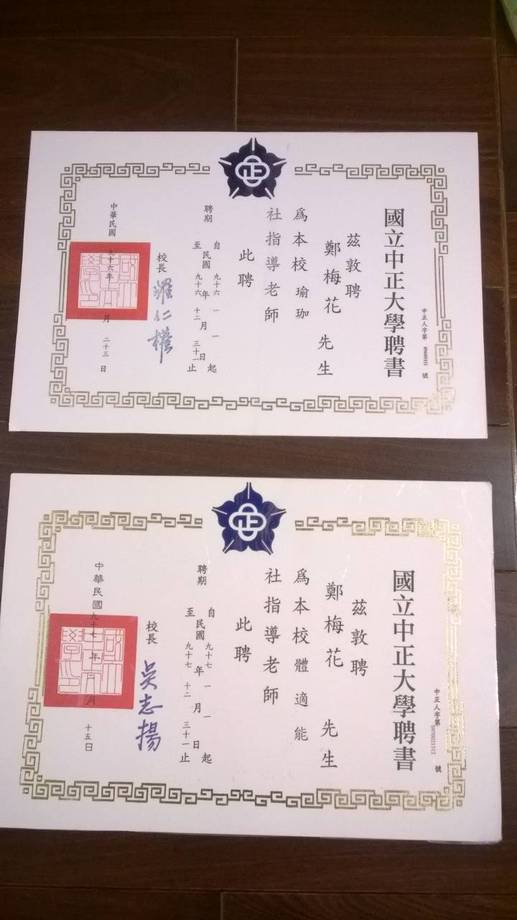 國立中正大學聘書
中正人字第 號
茲敦聘
鄭梅花 先生
爲本校 瑜珈
社指導老師
此聘
聘期 自 民國 九十六 年 一 月 一 日 起
至 九十六 十二 止
校長 羅仁權
中華民國 九十六 年 月 二十三 日
國立中正大學聘書
中正人字第 號
茲敦聘
鄭梅花 先生
爲本校 體適能
社指導老師
此聘
聘期 自 民國 九十七 年 一 月 一 日 起
至 九十七 十二 三十一 止
校長 吳志揚
中華民國 九十七 年 月 十五 日